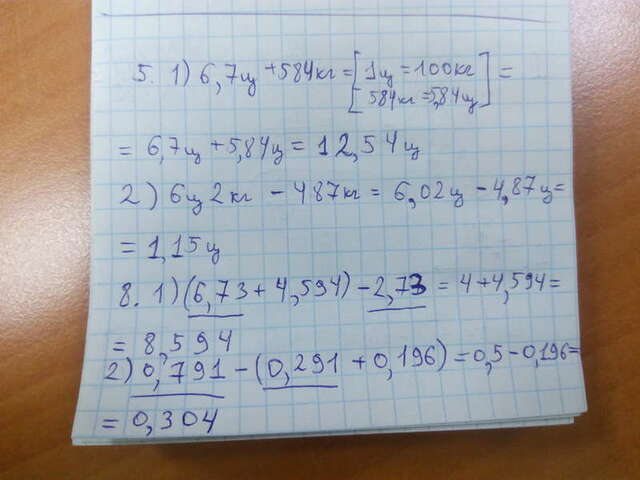 5. 1) 6,7ц + 584кг = [1ц = 100кг
584кг = 5,84ц] =
= 6,7ц + 5,84ц = 12,54ц
2) 6ц 2кг - 487кг = 6,02ц - 4,87ц =
= 1,15ц
8. 1) (6,73 + 4,594) - 2,73 = 4 + 4,594 =
= 8,594
2) 0,791 - (0,291 + 0,196) = 0,5 - 0,196 =
= 0,304